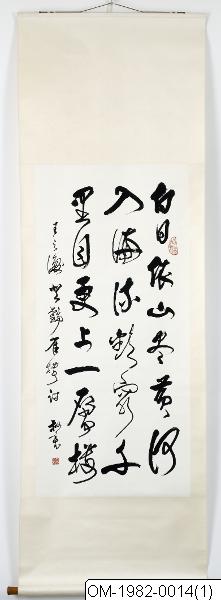 白日依山尽黄河
入海流欲窮千
里目更上一層樓
王之渙登鸛雀樓詩
OM-1982-0014(1)